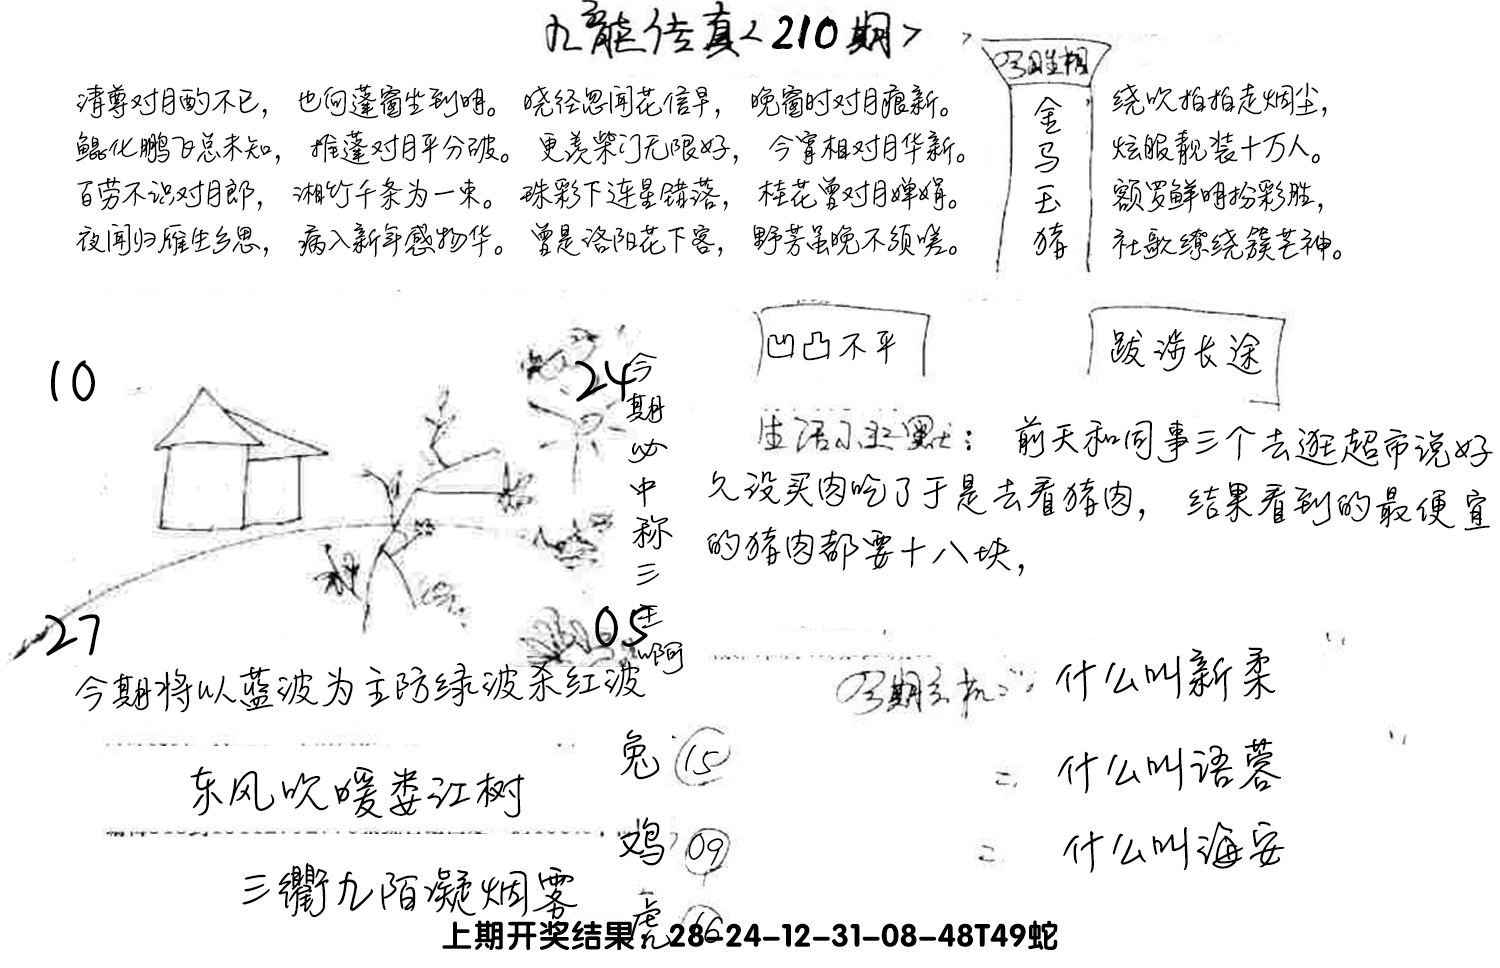 九龙传真<210期>
清尊对月酌不已， 也向蓬窗坐到明。 晓径忽闻花信早， 晚窗时对月痕新。
鲲化鹏飞总未知， 推蓬对月平分破。 更羡柴门无限好， 今宵相对月华新。
百劳不识对月郎， 湘竹千条为一束。 珠彩下连星错落， 桂花曾对月婵娟。
夜闻归雁生乡思， 病入新年感物华。 曾是洛阳花下客， 野芳虽晚不须嗟。
金
马
玉
猪
绕吹拍拍走烟尘，
炫服靓装十万人。
额罗鲜明扮彩胜，
社歌缭绕簇芒神。
10
24
27
05
今期必中称三主啊
凹凸不平
跋涉长途
生活小幽默： 前天和同事三个去逛超市说好
久没买肉吃了于是去看猪肉， 结果看到的最便宜
的猪肉都要十八块，
今期将以蓝波为主防绿波杀红波
东风吹暖娄江树
三衢九陌凝烟雾
兔 15
鸡 09
虎
今期玄机： 什么叫新柔
= 什么叫语蓉
= 什么叫海安
上期开奖结果：28-24-12-31-08-48T49蛇